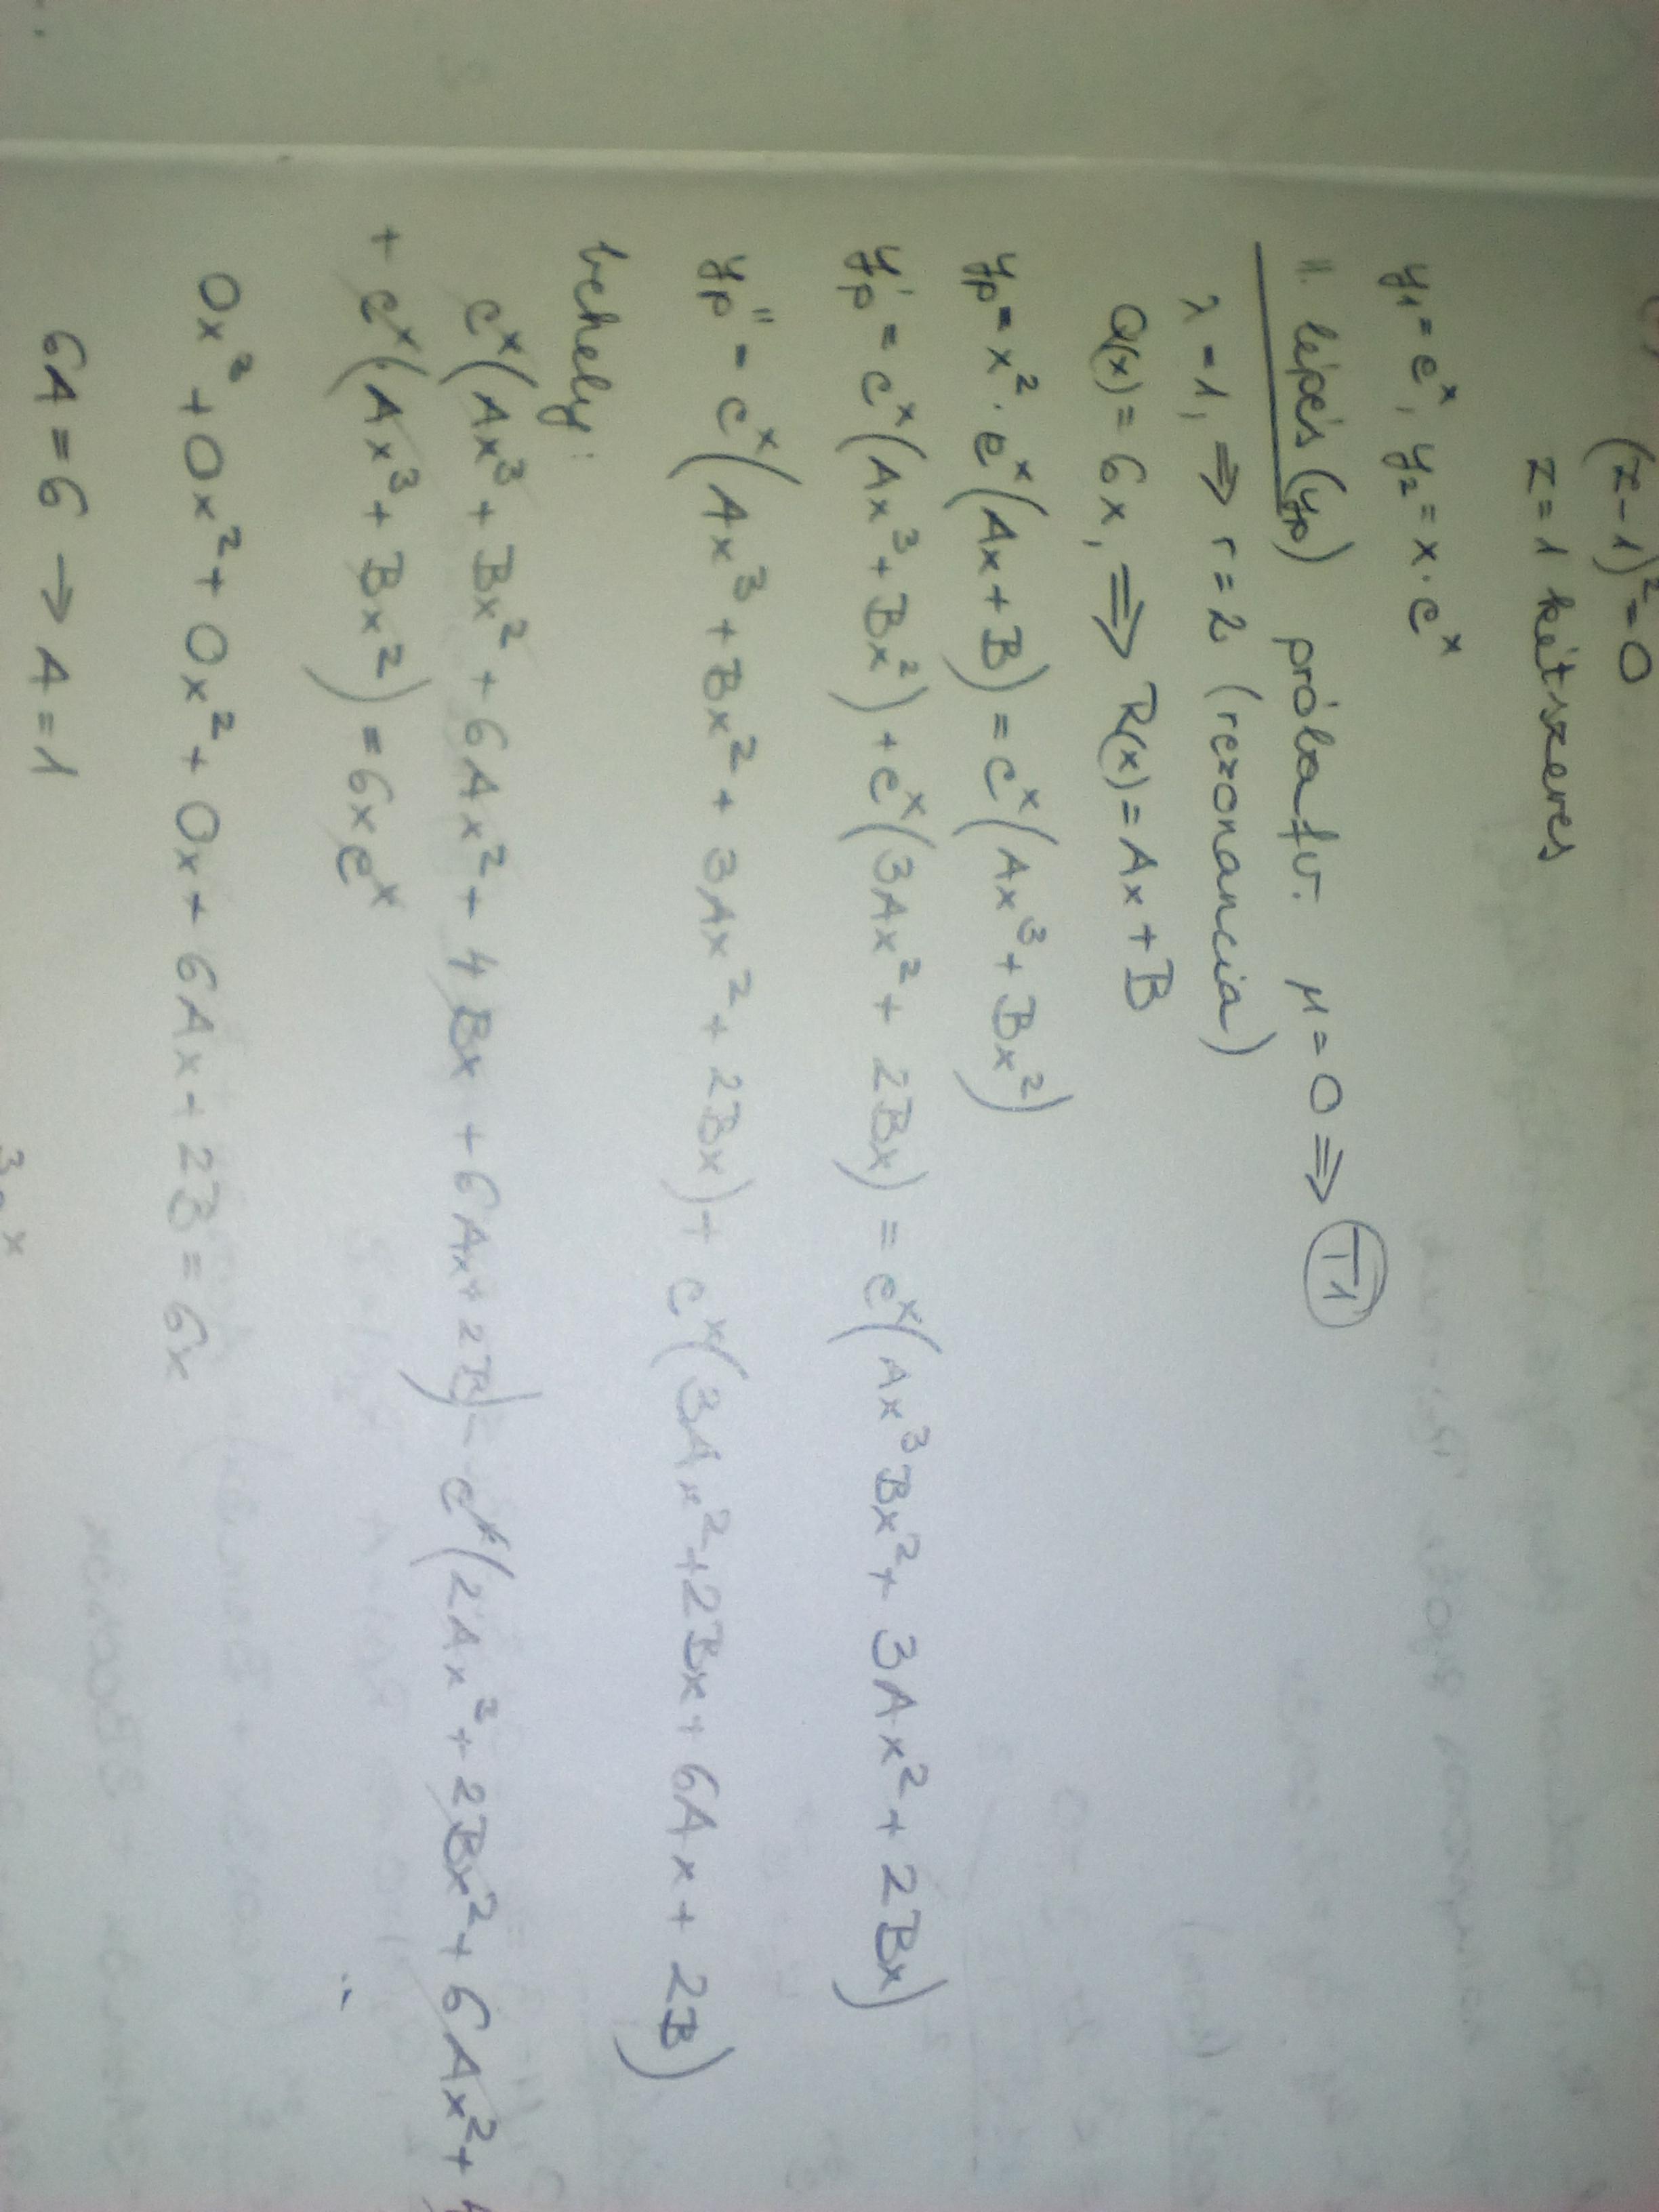 (z-1)² = 0
z = 1 kétszeres
y₁ = eˣ, y₂ = x · eˣ
II. lépés (yp) próba fv. μ = 0 ⇒ T1
λ = 1, ⇒ r = 2 (rezonancia)
Q(x) = 6x, ⇒ R(x) = Ax + B
yp = x² · eˣ(Ax + B) = eˣ(Ax³ + Bx²)
yp' = eˣ(Ax³ + Bx²) + eˣ(3Ax² + 2Bx) = eˣ(Ax³ Bx² + 3Ax² + 2Bx)
yp'' = eˣ(Ax³ + Bx² + 3Ax² + 2Bx) + eˣ(3Ax² + 2Bx + 6Ax + 2B)
behely:
eˣ(Ax³ + Bx² + 6Ax² + 4Bx + 6Ax + 2B) - eˣ(2Ax³ + 2Bx² + 6Ax² +
+ eˣ(Ax³ + Bx²) = 6x eˣ
0x³ + 0x² + 0x² + 0x + 6Ax + 2B = 6x
6A = 6 → A = 1